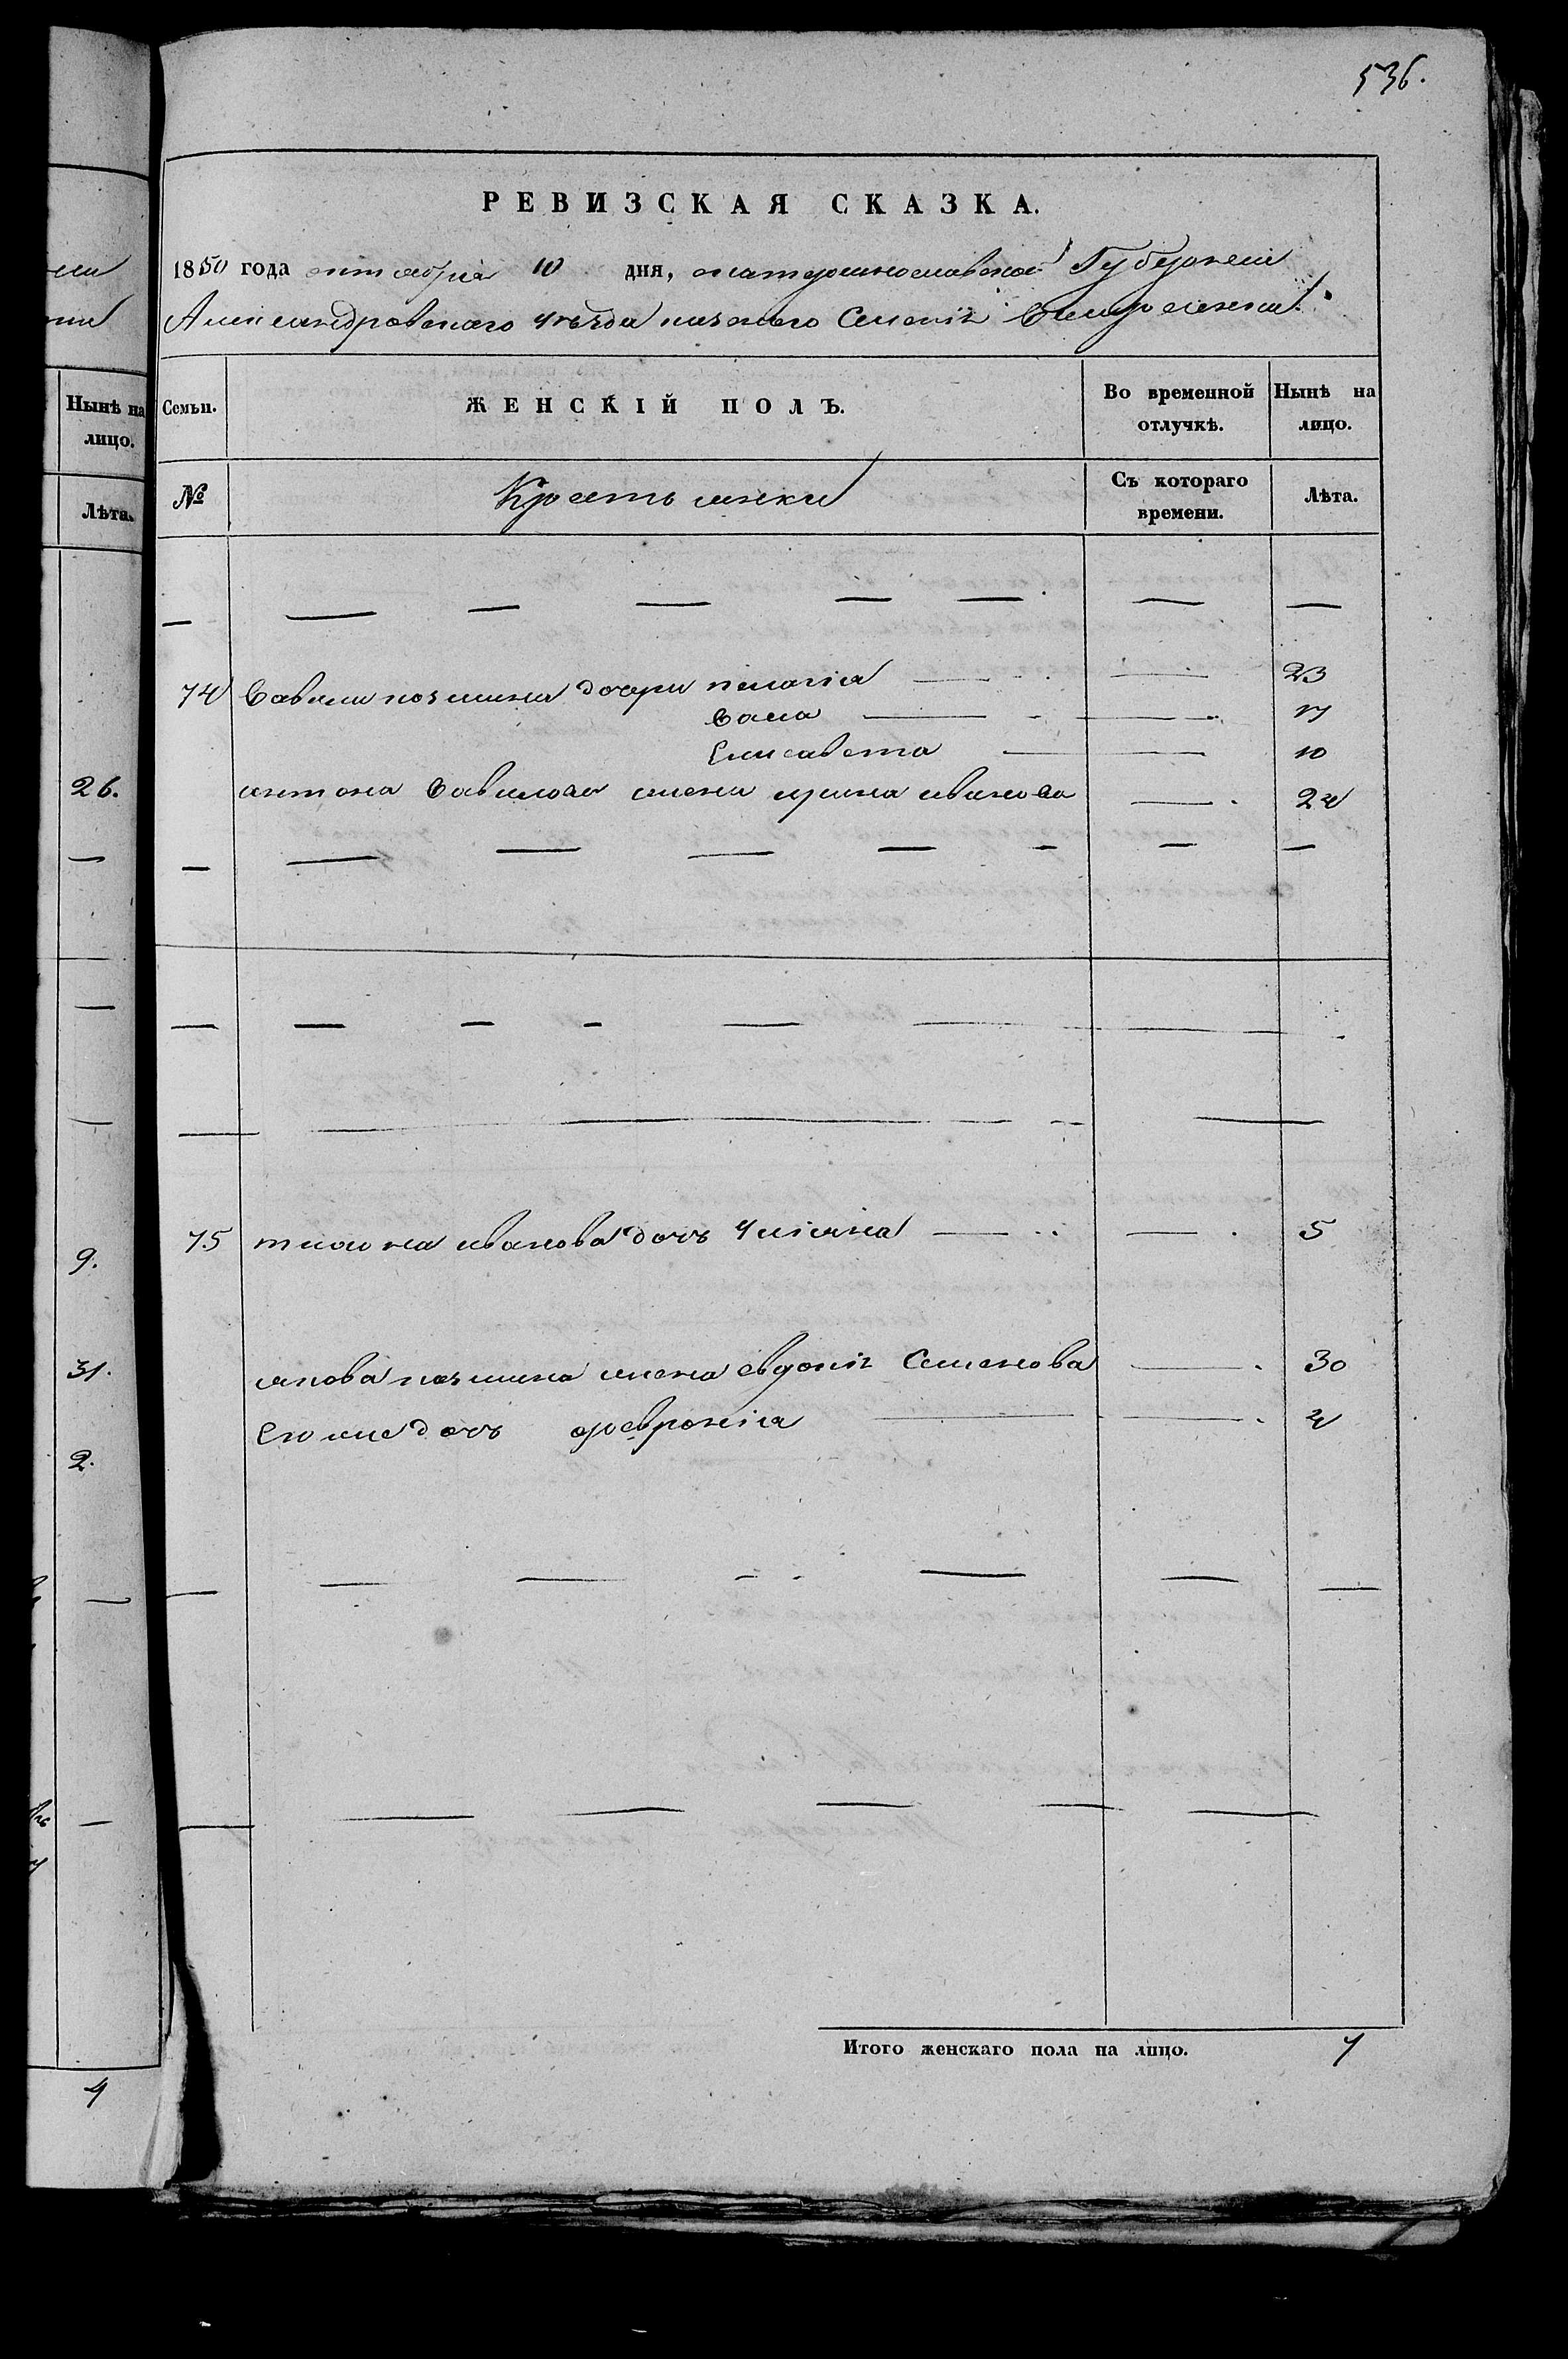 536.
РЕВИЗСКАЯ СКАЗКА.
1850 года октября 10 дня, екатеринославской Губернии
Александровского уѣзда казеного Селенія
Семьи. ЖЕНСКІЙ ПОЛЪ. Во временной отлучкѣ. Нынѣ на лицо.
№ Крестьянки Съ котораго времени. Лѣта.
74 Савели козмина дочери пелагія 23
17
Елисавета 10
антона Савилова жена ирина иванова 24
75 иванова дочь уліяна 5
якова козмина жена евдокія Семенова 30
Его же дочь февронія 4
Итого женскаго пола на лицо. 7
Нынѣ на лицо.
Лѣта.
26.
9.
31.
2.
4